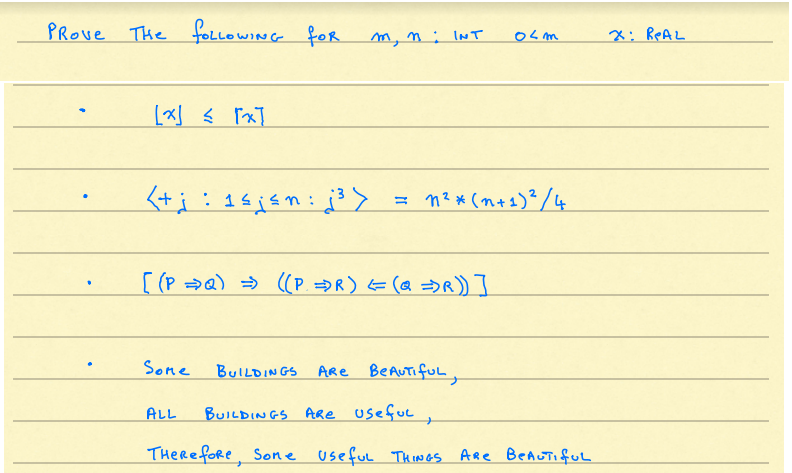 PROVE THE FOLLOWING FOR m, n : INT 0<m x: REAL
• ⌊x⌋ ≤ ⌈x⌉
• ⟨+j : 1≤j≤n : j³⟩ = n²*(n+1)²/4
• [(P ⇒Q) ⇒ ((P ⇒R) ⇐ (Q ⇒R))]
• SOME BUILDINGS ARE BEAUTIFUL,
ALL BUILDINGS ARE USEFUL,
THEREFORE, SOME USEFUL THINGS ARE BEAUTIFUL